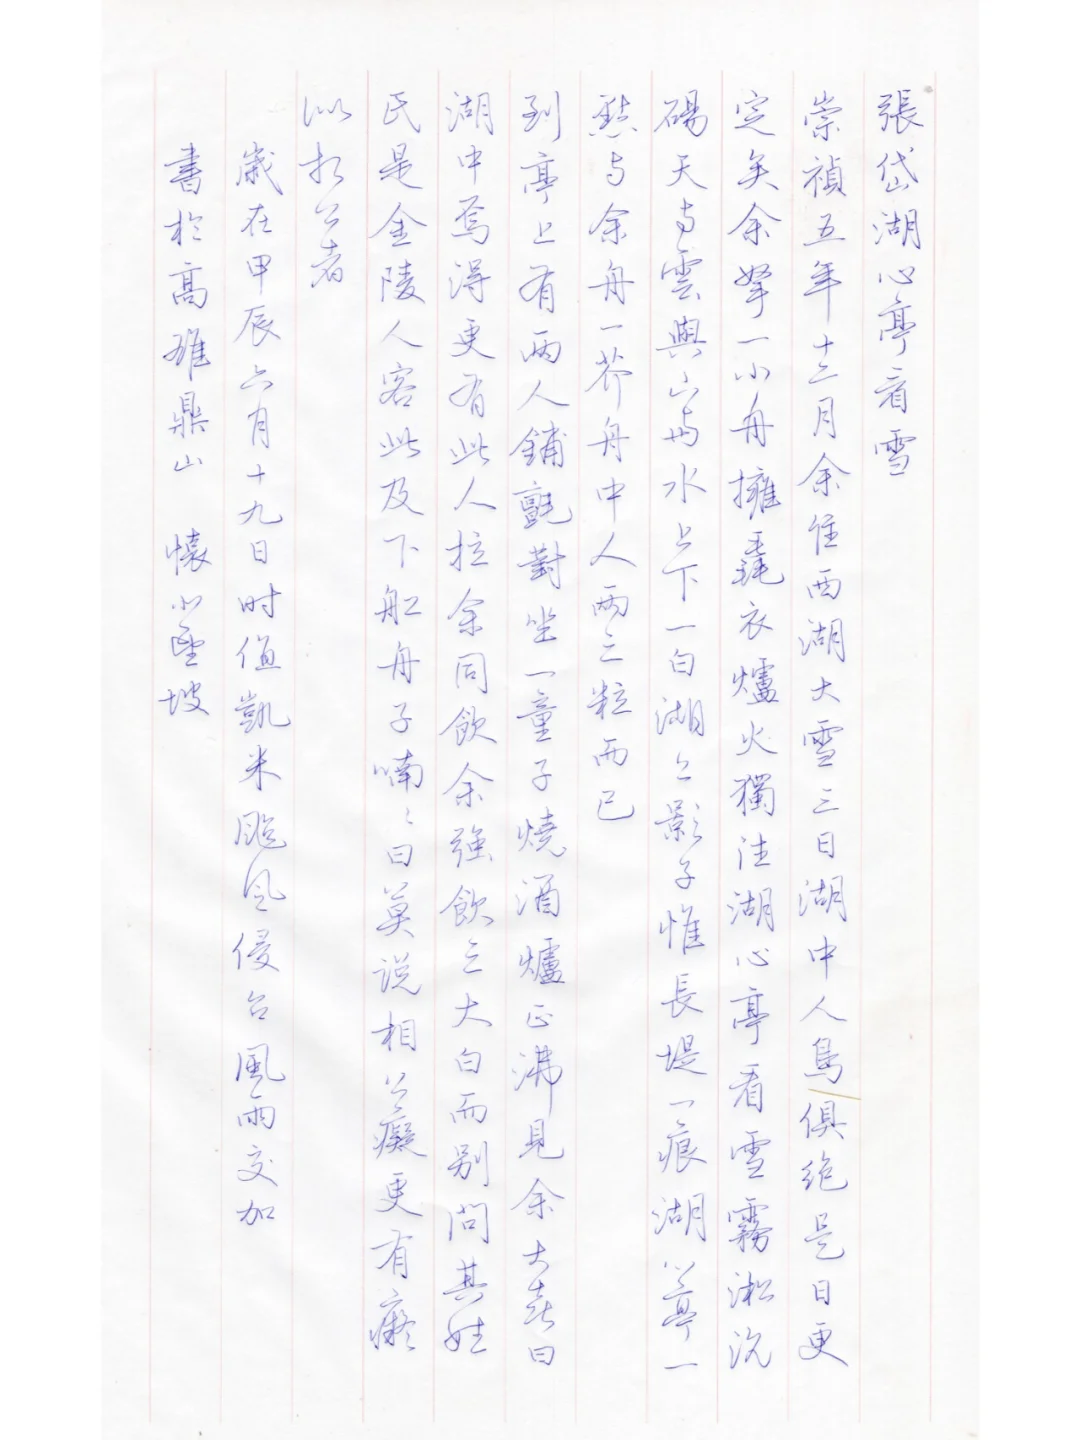 張岱湖心亭看雪
崇禎五年十二月余住西湖大雪三日湖中人鳥俱絶是日更
定矣余拏一小舟擁毳衣爐火獨往湖心亭看雪霧淞沆
碭天与雲與山與水上下一白湖上影子惟長堤一痕湖心亭一
點与余舟一芥舟中人兩三粒而已
到亭上有兩人鋪氈對坐一童子燒酒爐正沸見余大喜曰
湖中焉得更有此人拉余同飲余強飲三大白而别問其姓
氏是金陵人客此及下船舟子喃〻曰莫说相公癡更有癡
似相公者
歲在甲辰六月十九日时值凱米颱风侵台風雨交加
書於高雄鼎山 懷小坡